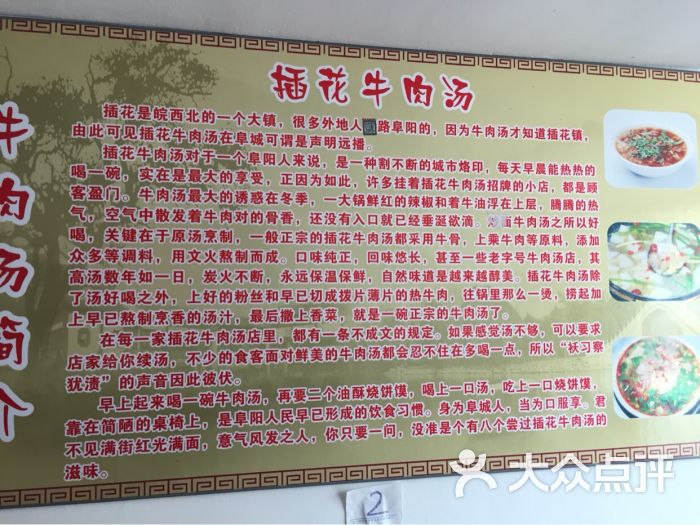 插花牛肉汤
牛肉汤简介
插花是皖西北的一个大镇，很多外地人路阜阳的，因为牛肉汤才知道插花镇，
由此可见插花牛肉汤在阜城可谓是声明远播。
插花牛肉汤对于一个阜阳人来说，是一种割不断的城市烙印，每天早晨能热热的
喝一碗，实在是最大的享受，正因为如此，许多挂着插花牛肉汤招牌的小店，都是顾
客盈门。牛肉汤最大的诱惑在冬季，一大锅鲜红的辣椒和着牛油浮在上层，腾腾的热
气，空气中散发着牛肉对的骨香，还没有入口就已经垂涎欲滴。面牛肉汤之所以好
喝，关键在于原汤烹制，一般正宗的插花牛肉汤都采用牛骨，上乘牛肉等原料，添加
众多等调料，用文火熬制而成。口味纯正，回味悠长，甚至一些老字号牛肉汤店，其
高汤数年如一日，炭火不断，永远保温保鲜，自然味道是越来越醇美。插花牛肉汤除
了汤好喝之外，上好的粉丝和早已切成拨片薄片的热牛肉，往锅里那么一烫，捞起加
上早已熬制烹香的汤汁，最后撒上香菜，就是一碗正宗的牛肉汤了。
在每一家插花牛肉汤店里，都有一条不成文的规定。如果感觉汤不够，可以要求
店家给你续汤，不少的食客面对鲜美的牛肉汤都会忍不住在多喝一点，所以“袄习察
犹渍”的声音因此彼伏。
早上起来喝一碗牛肉汤，再要二个油酥烧饼馍，喝上一口汤，吃上一口烧饼馍，
靠在简陋的桌椅上，是阜阳人民早已形成的饮食习惯。身为阜城人，当为口服享。君
不见满街红光满面，意气风发之人，你只要一问，没准是个有八个尝过插花牛肉汤的
滋味。
2
大众点评